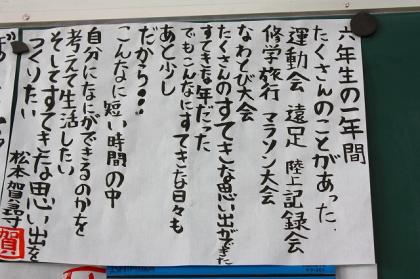 六年生の一年間
たくさんのことがあった
運動会 遠足 陸上記録会
修学旅行 マラソン大会
なわとび大会
たくさんのすてきな思い出ができた
すてきな年だった
でもこんなにすてきな日々も
あと少し
だから・・・
こんなに短い時間の中
自分になにができるのかを
考えて生活したい
そしてすてきな思い出を
つくりたい
松本 賀
賀